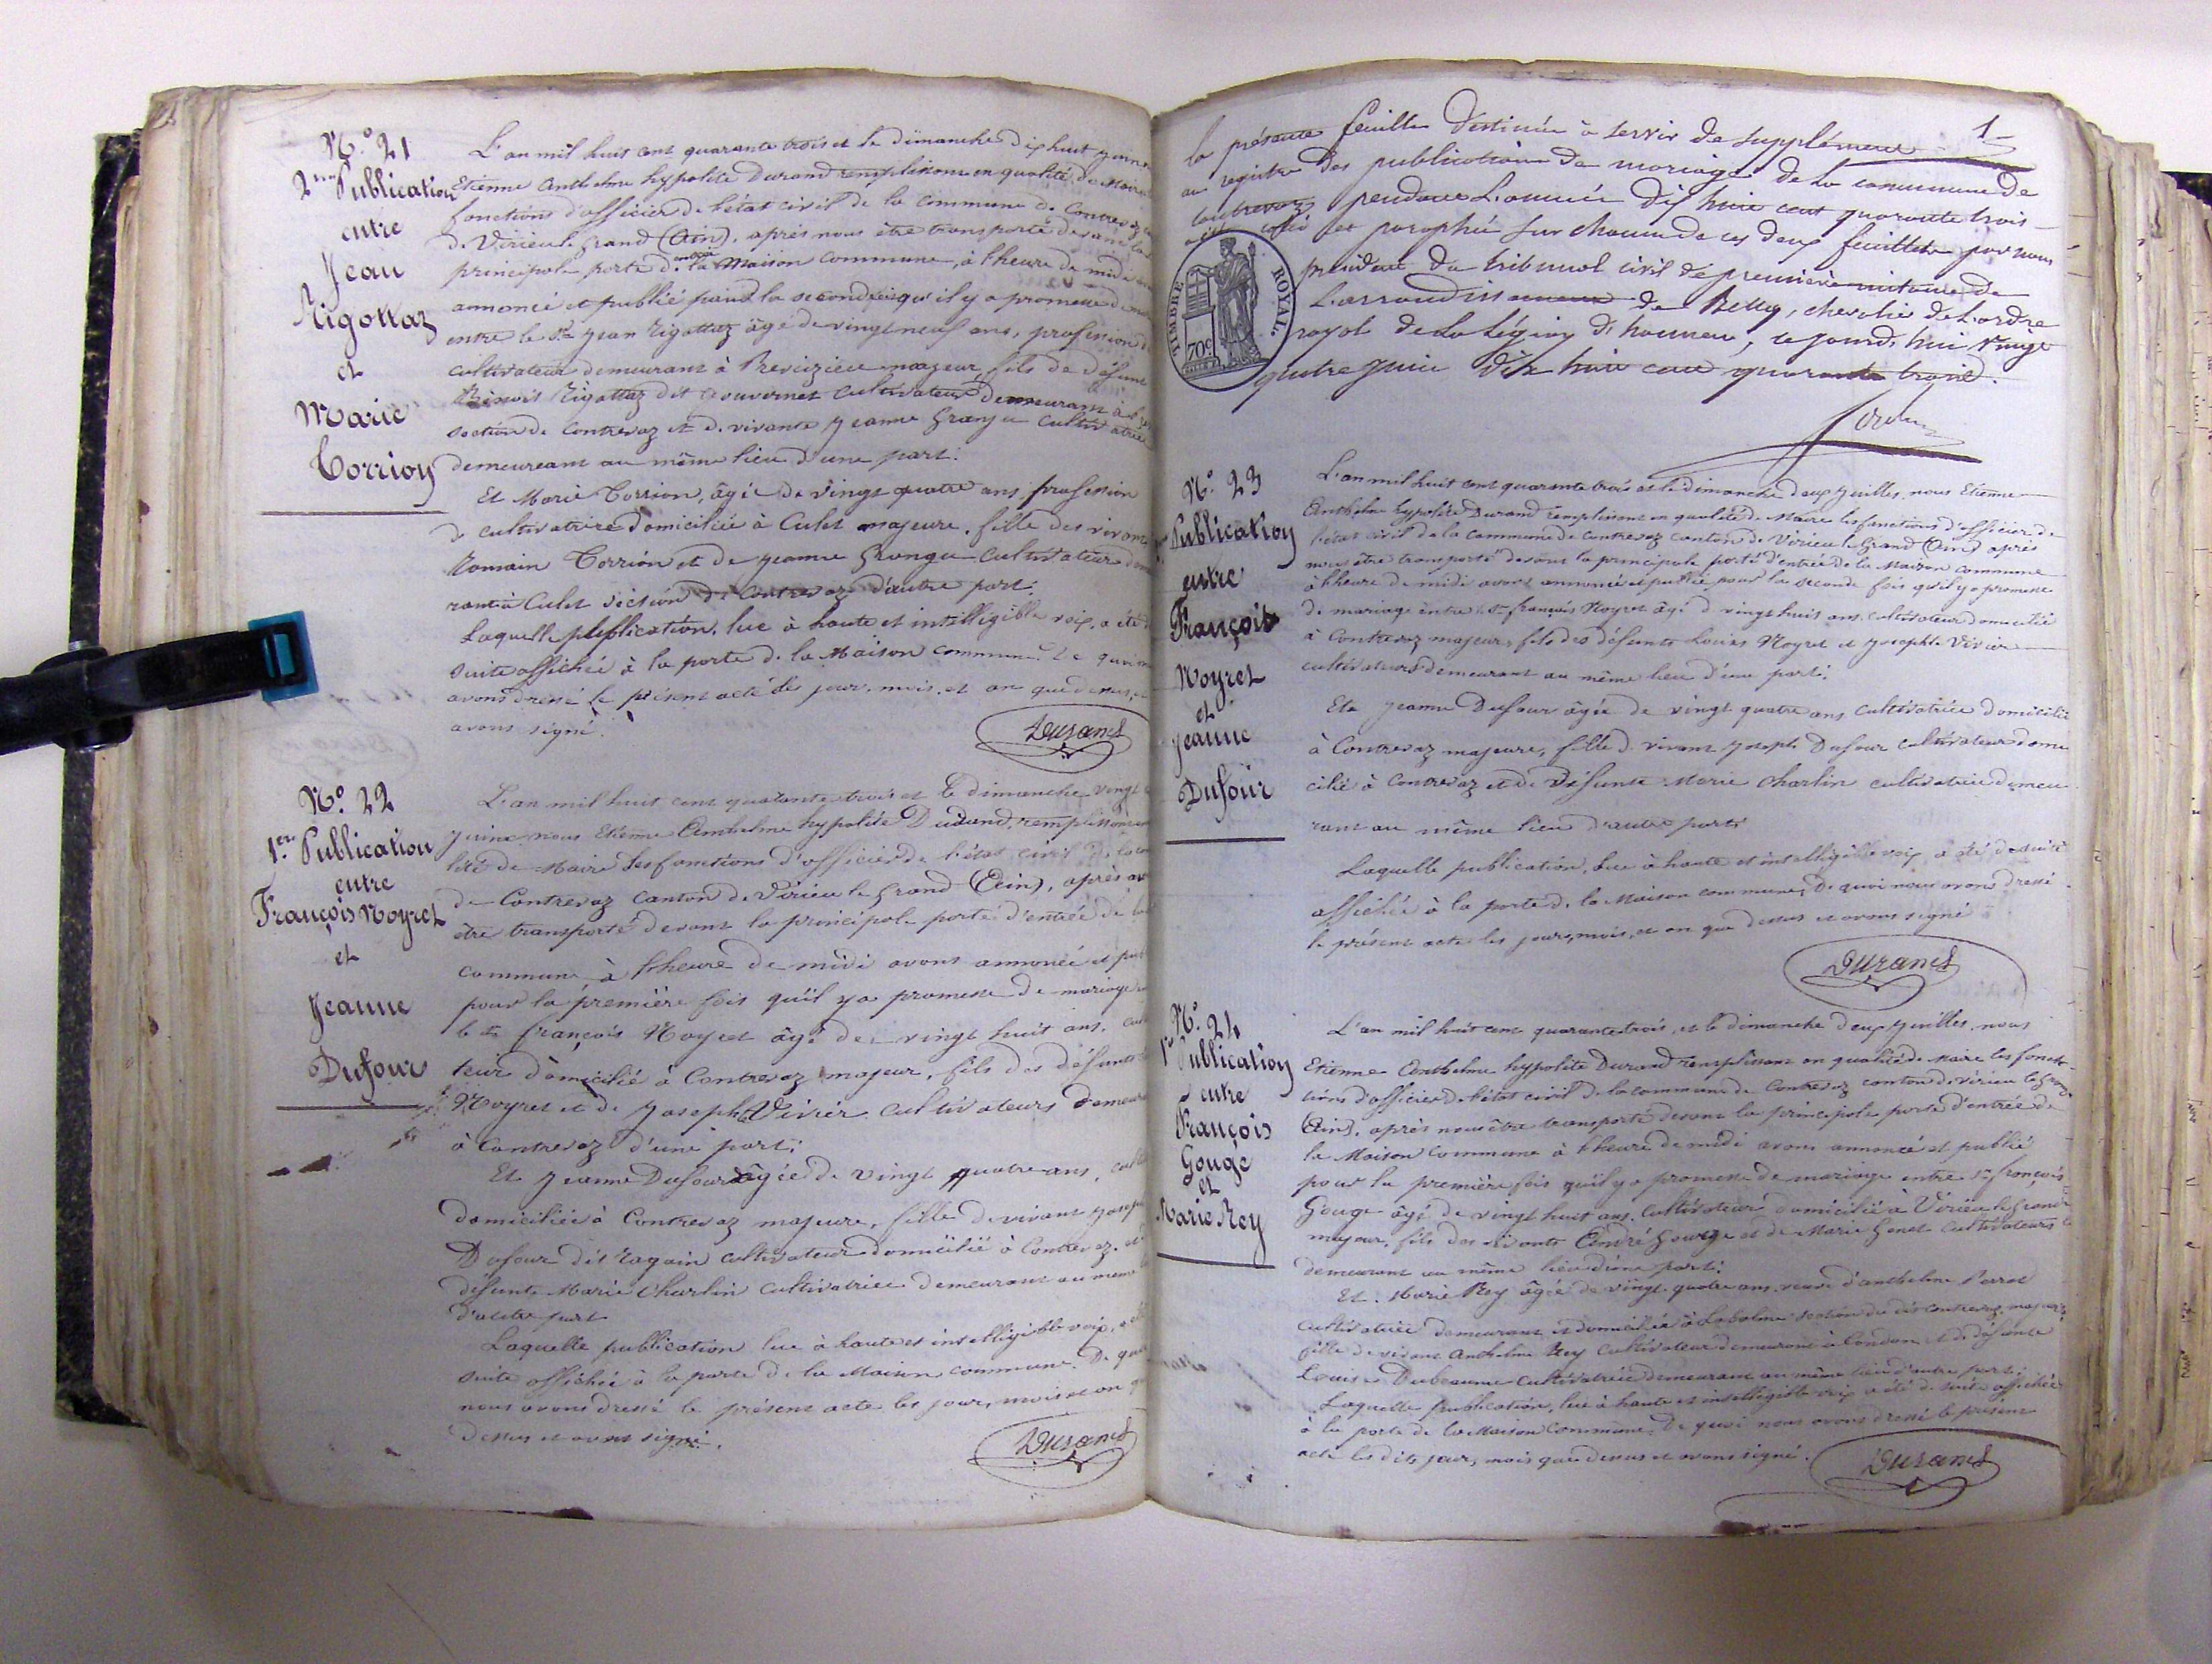 N.° 21
2.me Publication
entre
Jean
Rigottaz
et
Marie
Corrion
L'an mil huit cent quarante trois et le dimanche dix huit juin
Etienne Anthelme hypolite Durand remplissant en qualité de Maire
fonctions d'officier de l'état civil de la commune de Contrevoz
de Virieu le grand (Ain), après nous être transporté devant la
principale porte d'entrée de la Maison commune, à l'heure de midi
annoncé et publié pour la seconde fois qu'il y a promesse de
entre le Sr jean Rigottaz âgé de vingt neuf ans, profession de
cultivateur demeurant à Preveizieu majeur, fils de défunt
Benoit Rigottaz dit Gouvernet cultivateur demeurant à
section de Contrevoz et de vivante jeanne Grange cultivatrice
demeureant au même lieu d'une part.
Et Marie Corrion, âgée de vingt quatre ans, profession
de cultivatrice domiciliée à Culet majeure, fille des vivants
Romain Corrion et de jeanne Grange cultivateurs
rant à Culet section de Contrevoz d'autre part.
Laquelle publication, lue à haute et intelligible voix, a été
suite affichée à la porte de la Maison commune. De quoi
avons dressé le présent acte les jour, mois, et an que dessus,
avons signé.
Durand
N.° 22
1.ere Publication
entre
François Noyret
et
Jeanne
Dufour
L'an mil huit cent quarante trois et le dimanche vingt
juin nous Etienne Anthelme hypolite Durand, remplissant
lité de Maire les fonctions d'officier de l'état civil de la
de Contrevoz canton de Virieu le grand (Ain), après
être transporté devant la principale porte d'entrée de la
commune à l'heure de midi avons annoncé et
pour la première fois qu'il y a promesse de mariage
le Sr françois Noyret âgé de vingt huit ans,
teur domicilié à Contrevoz majeur, fils des défunts
Noyret et de Josephte Vivier cultivateurs
à Contrevoz d'une part.
Et Jeanne Dufour âgée de vingt quatre ans,
domiciliée à Contrevoz majeure, fille de vivant Joseph
Dufour dit Ragain cultivateur domicilié à Contrevoz, et
défunte Marie Charlin cultivatrice demeurant au même
d'autre part
Laquelle publication lue à haute et intelligible voix, a
suite affichée à la porte de la Maison commune. De quoi
nous avons dressé le présent acte les jour, mois et an
dessus et avons signé.
Durand
1
la présente feuille destinée à servir de supplément
au registre des publications de mariages de la commune de
Contrevoz pendant l'année dix huit cent quarante trois
a été cotée et paraphée sur chacun de ces deux feuillets par nous
président du tribunal civil de première instance de
l'arrondissement de Belley, chevalier de l'ordre
royal de la légion d'honneur, ce jourd'hui vingt
quatre juin dix huit cent quarante trois.
TIMBRE ROYAL.
70c
N.° 23
Publication
entre
François
Noyret
et
Jeanne
Dufour
L'an mil huit cent quarante trois et le dimanche deux juillet, nous Etienne
Anthelme hypolite Durand remplissant en qualité de Maire les fonctions d'officier de
l'état civil de la Commune de Contrevoz canton de Virieu le grand (Ain) après
nous être transporté devant la principale porte d'entrée de la Maison commune
à l'heure de midi avons annoncé et publié pour la seconde fois qu'il y a promesse
de mariage entre le Sr françois Noyret âgé de vingt huit ans, cultivateur domicilié
à Contrevoz majeur, fils des défunts Louis Noyret et Josephte Vivier
cultivateurs demeurant au même lieu d'une part.
Et Jeanne Dufour âgée de vingt quatre ans cultivatrice domicilié
à Contrevoz majeure, fille de vivant Joseph Dufour cultivateur domi
cilié à Contrevoz et de défunte Marie Charlin cultivatrice demeu
rant au même lieu d'autre part.
Laquelle publication, lue à haute et intelligible voix a été de suite
affichée à la porte de la Maison commune, De quoi nous avons dressé
le présent acte les jour, mois, et an que dessus et avons signé
Durand
N.° 24
1.re Publication
entre
François
Gouge
et
Marie Rey
L'an mil huit cent quarante trois, et le dimanche deux juillet, nous
Etienne Anthelme hypolite Durand remplissant en qualité de Maire les fonc
tions d'officier de l'état civil de la commune de Contrevoz canton de Virieu le Grand
(Ain), après nous être transporté devant la principale porte d'entrée de
la Maison Commune à l'heure de midi avons annoncé et publié
pour la première fois qu'il y a promesse de mariage entre Sr françois
Gouge âgé de vingt huit ans, Cultivateur domicilié à Virieu le Grand
majeur, fils des vivants André Gouge et de Marie Genet Cultivateurs
demeurant au même lieu d'une part.
Et Marie Rey âgée de vingt quatre ans, veuve d'anthelme Perret
Cultivatrice demeurant et domiciliée à Labalme section du dit Contrevoz, majeure
fille de vivant Anthelme Rey Cultivateur demeurant à Condon et de défunte
Louise Dubeaume cultivatrice demeurant au même lieu d'autre part.
Laquelle publication, lue à haute et intelligible voix a été de suite affichée
à la porte de la Maison Commune, De quoi nous avons dressé le présent
acte les dits jour, mois que dessus et avons signé.
Durand